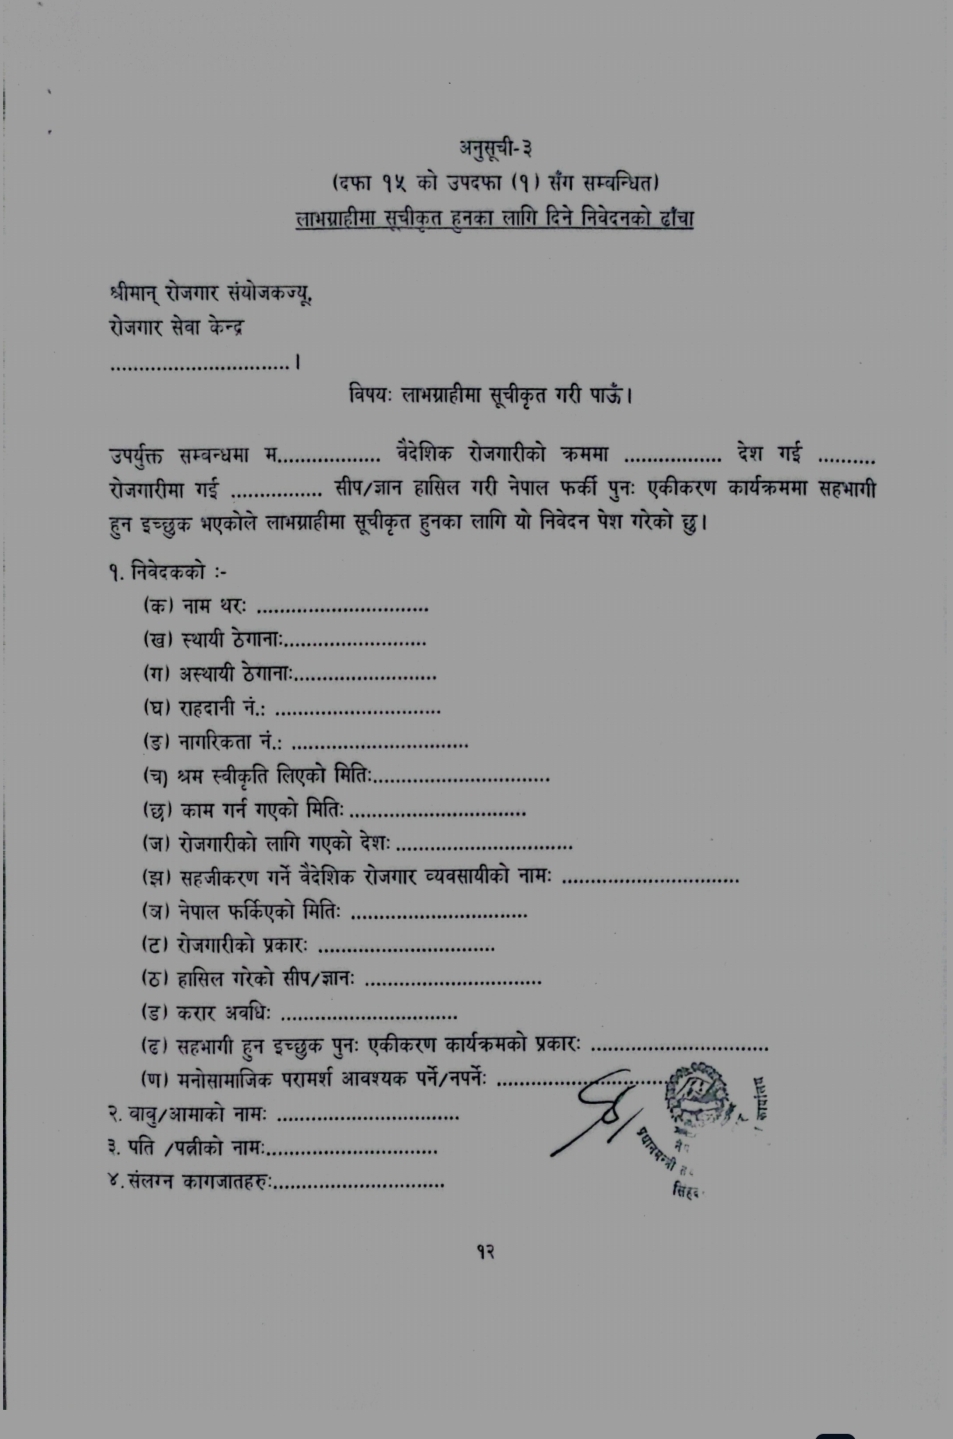 अनुसूची-३
(दफा १५ को उपदफा (१) सँग सम्बन्धित)
लाभग्राहीमा सूचीकृत हुनका लागि दिने निवेदनको ढाँचा
श्रीमान् रोजगार संयोजकज्यू,
रोजगार सेवा केन्द्र
...............................।
विषयः लाभग्राहीमा सूचीकृत गरी पाऊँ।
उपर्युक्त सम्बन्धमा म.................. वैदेशिक रोजगारीको क्रममा ................. देश गई ..........
रोजगारीमा गई ................ सीप/ज्ञान हासिल गरी नेपाल फर्की पुनः एकीकरण कार्यक्रममा सहभागी
हुन इच्छुक भएकोले लाभग्राहीमा सूचीकृत हुनका लागि यो निवेदन पेश गरेको छु।
१. निवेदकको :-
(क) नाम थरः ..............................
(ख) स्थायी ठेगानाः.........................
(ग) अस्थायी ठेगानाः.........................
(घ) राहदानी नं.: .............................
(ङ) नागरिकता नं.: ...............................
(च) श्रम स्वीकृति लिएको मितिः...............................
(छ) काम गर्न गएको मितिः ...............................
(ज) रोजगारीको लागि गएको देशः ...............................
(झ) सहजीकरण गर्ने वैदेशिक रोजगार व्यवसायीको नामः ...............................
(ञ) नेपाल फर्किएको मितिः ...............................
(ट) रोजगारीको प्रकारः ...............................
(ठ) हासिल गरेको सीप/ज्ञानः ...............................
(ड) करार अवधिः ...............................
(ढ) सहभागी हुन इच्छुक पुनः एकीकरण कार्यक्रमको प्रकारः ...............................
(ण) मनोसामाजिक परामर्श आवश्यक पर्ने/नपर्नेः ..............................
२. बाबु/आमाको नामः ................................
३. पति /पत्नीको नामः..............................
४. संलग्न कागजातहरुः..............................
प्रधानमन्त्री
कार्यालय
१२